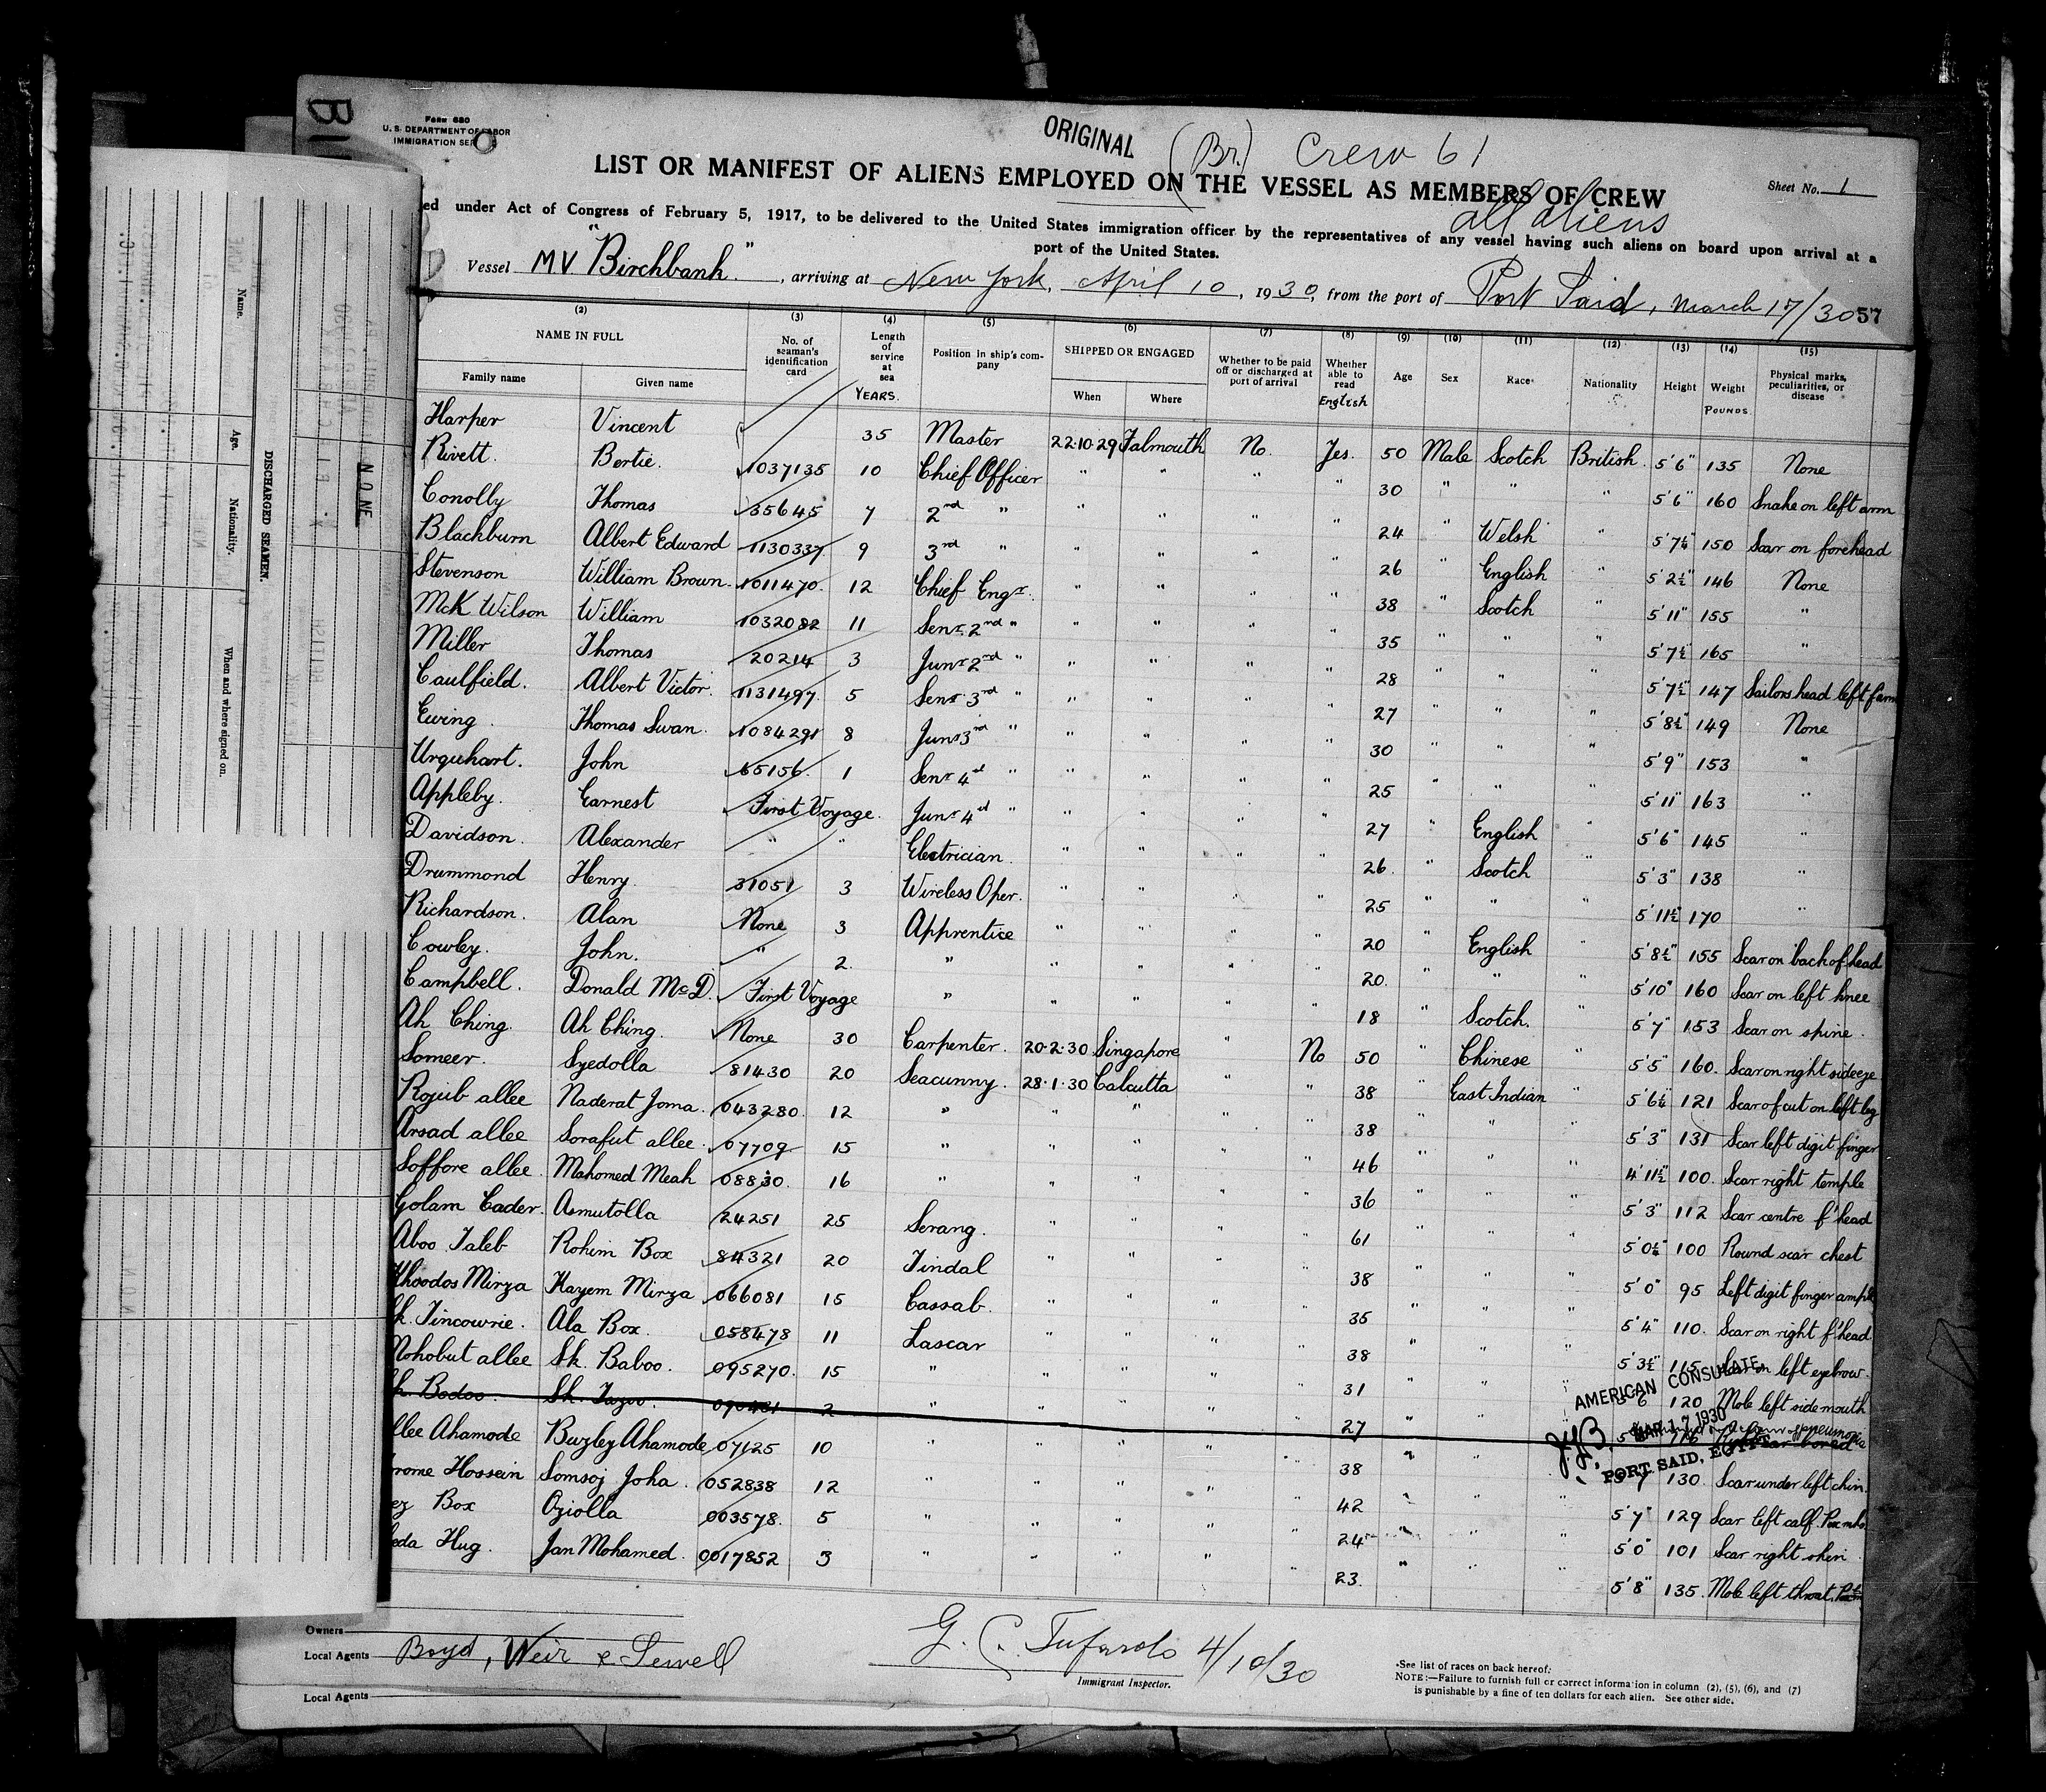 Form 680
U. S. DEPARTMENT OF LABOR
IMMIGRATION SER
ORIGINAL (Br.) Crew 61
LIST OR MANIFEST OF ALIENS EMPLOYED ON THE VESSEL AS MEMBERS OF CREW
Sheet No. 1
all aliens
ed under Act of Congress of February 5, 1917, to be delivered to the United States immigration officer by the representatives of any vessel having such aliens on board upon arrival at a
port of the United States.
Vessel MV "Birchbank.", arriving at New York, April 10, 1930, from the port of Port Said, March 17/30 57
(2) (3) (4) (5) (6) (7) (8) (9) (10) (11) (12) (13) (14) (15)
NAME IN FULL
Family name Given name
No. of seaman's identification card
Length of service at sea YEARS.
Position in ship's company
SHIPPED OR ENGAGED
When Where
Whether to be paid off or discharged at port of arrival
Whether able to read English
Age Sex Race* Nationality Height Weight POUNDS.
Physical marks, peculiarities, or disease
Harper Vincent 35 Master 22.10.29 Falmouth No. Yes. 50 Male Scotch British 5'6" 135 None
Rivett. Bertie. 1037135 10 Chief Officer " " " " 30 " " " 5'6" 160 Snake on left arm
Conolly Thomas 35645 7 2nd " " " " " 24 " Welsh " 5'7¼" 150 Scar on forehead
Blackburn Albert Edward 1130337 9 3rd " " " " " 26 " English " 5'2½" 146 None
Stevenson William Brown 1011470 12 Chief Engr. " " " " 38 " Scotch " 5'11" 155 "
McK Wilson William 1032082 11 Senr 2nd " " " " " 35 " " " 5'7½" 165 "
Miller Thomas 20214 3 Junr 2nd " " " " " 28 " " " 5'7½" 147 Sailors head left f'arm
Caulfield. Albert Victor. 1131497 5 Senr 3rd " " " " " 27 " " " 5'8½" 149 None
Ewing. Thomas Swan. 1084291 8 Junr 3rd " " " " " 30 " " " 5'9" 153 "
Urquhart. John 65156. 1 Senr 4th " " " " " 25 " " " 5'11" 163 "
Appleby. Earnest First Voyage. Junr 4th " " " " " 27 " English " 5'6" 145 "
Davidson. Alexander " " Electrician. " " " " 26. " Scotch " 5'3" 138 "
Drummond Henry. 31051 3 Wireless Oper. " " " " 25 " " " 5'11½" 170 "
Richardson. Alan None 3 Apprentice " " " " 20 " English " 5'8½" 155 Scar on back of head
Cowley. John. " 2. " " " " " 20. " " " 5'10" 160 Scar on left knee
Campbell. Donald McD. First Voyage " " " " " 18 " Scotch. " 5'7" 153 Scar on spine.
Ah Ching. Ah Ching. None 30 Carpenter. 20.2.30 Singapore " No 50 " Chinese " 5'5" 160. Scar on right side eye
Someer. Syedolla 81430 20 Seacunny. 28.1.30 Calcutta " " 38 " East Indian " 5'6¼" 121 Scar of cut on left leg
Rojub allee Naderat Joma. 043280. 12 " " " " " 38 " " " 5'3" 131 Scar left digit finger
Arsad allee Sorafut allee. 07709 15 " " " " " 46 " " " 4'11½" 100. Scar right temple
Soffore allee. Mahomed Meah 08830. 16 " " " " " 36 " " " 5'3" 112 Scar centre f'head
Golam Cader. Asmutolla 24251 25 Serang. " " " " 61 " " " 5'0½" 100 Round scar chest
Aboo Taleb Rohim Box 84321 20 Tindal " " " " 38 " " " 5'0" 95 Left digit finger amp
Khoodos Mirza Kayem Mirza 066081 15 Cassab. " " " " 35 " " " 5'4" 110. Scar on right f'head
k. Tincowrie. Ala Box. 058478 11 Lascar " " " " 38 " " " 5'3½" 115 on left eyebrow.
Mohobut allee Sk. Baboo. 095270. 15 " " " " " 31 " " " 6 120 Mole left side mouth
k. Bodoo. 2 " " " " " 27 " " pneumonia
llee Ahamode Buzley Ahamode 07125 10 " " " " " 38 " " 7 130. Scar under left chin.
rome Hossein Somsoj Joha. 052838 12 " " " " " 42 " " " 5'7" 129 Scar left calf.
ez Box Oziolla 003578. 5 " " " " " 24 " " " 5'0" 101 Scar right shin
eda Hug. Jan Mohamed. 0017852 3 " " " " " 23. " " " 5'8" 135. Mole left throat.
AMERICAN CONSULATE
MAR 17 1930
PORT SAID, EGYPT
Owners
Local Agents Boyd, Weir & Sewell
Local Agents
G. C. Tufarolo 4/10/30
Immigrant Inspector.
*See list of races on back hereof.
NOTE:—Failure to furnish full or correct information in column (2), (5), (6), and (7)
is punishable by a fine of ten dollars for each alien. See other side.
DISCHARGED SEAMEN.
Name. Age. Nationality. When and where signed on.
NONE